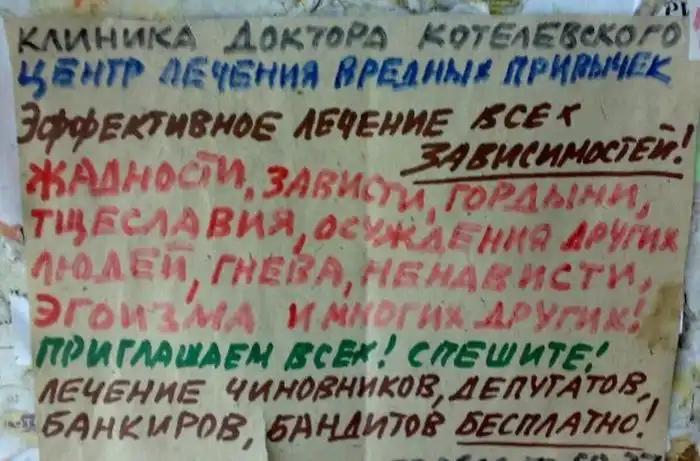 КЛИНИКА ДОКТОРА КОТЕЛЕВСКОГО
ЦЕНТР ЛЕЧЕНИЯ ВРЕДНЫХ ПРИВЫЧЕК
ЭФФЕКТИВНОЕ ЛЕЧЕНИЕ ВСЕХ
ЗАВИСИМОСТЕЙ!
ЖАДНОСТИ, ЗАВИСТИ, ГОРДЫНИ,
ТЩЕСЛАВИЯ, ОСУЖДЕНИЯ ДРУГИХ
ЛЮДЕЙ, ГНЕВА, НЕНАВИСТИ,
ЭГОИЗМА И МНОГИХ ДРУГИХ!
ПРИГЛАШАЕМ ВСЕХ! СПЕШИТЕ!
ЛЕЧЕНИЕ ЧИНОВНИКОВ, ДЕПУТАТОВ,
БАНКИРОВ, БАНДИТОВ БЕСПЛАТНО!